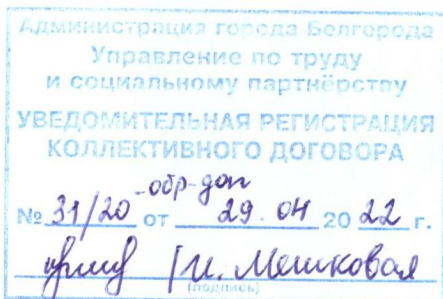 Администрация города Белгорода
Управление по труду
и социальному партнёрству
УВЕДОМИТЕЛЬНАЯ РЕГИСТРАЦИЯ
КОЛЛЕКТИВНОГО ДОГОВОРА
-обр-доп
№ 31/20 от 29.04 2022 г.
И. Мешковая
(подпись)